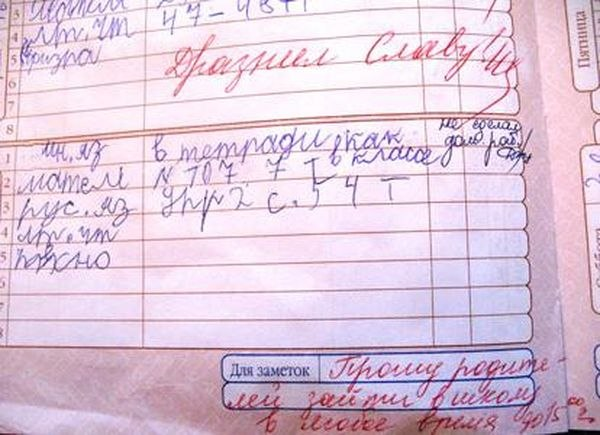 3 матем
4 лит. чт 47-48
5
Дразнил Славу!
6
7
8
1 ин. яз в тетради, как в классе
не сделал дом. раб.
2 матем N 107. 7 т
3 рус. яз Упр 2 с. 5 4 т
4 лит. чт
5
6
7
8
Пятница
Для заметок Прошу родите-
лей зайти в школу
в любое время до 15 00